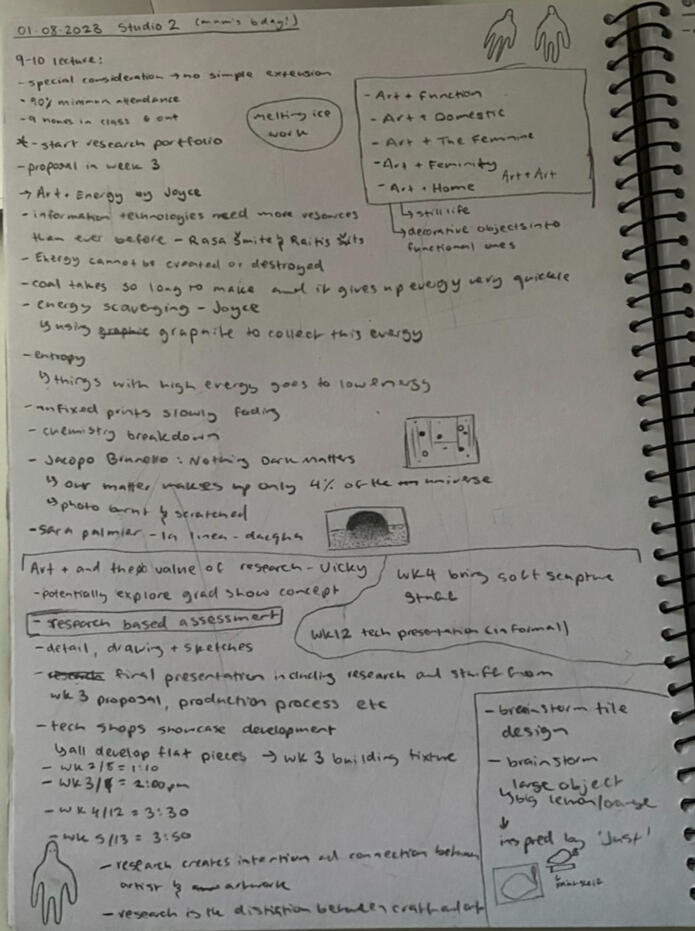 01.08.2023 Studio 2 (mum's bday!)
9-10 lecture:
- special consideration → no simple extension
- 90% minimum attendance
- 9 hours in class & out
* - start research portfolio
- proposal in week 3
melting ice
work
- Art + Function
- Art + Domestic
- Art + The Feminine
- Art + Feminity
Art + Art
- Art + Home
↳ still life
↳ decorative objects into
functional ones
→ Art + Energy by Joyce
- information technologies need more resources
than ever before - Rasa Šmite & Raitis Šmits
- Energy cannot be created or destroyed
- coal takes so long to make and it gives up energy very quickle
- energy scavenging - Joyce
↳ using graphite to collect this energy
- entropy
↳ things with high energy goes to low energy
- unfixed prints slowly fading
- chemistry breakdown
- Jacopo : Nothing Dark matters
↳ our matter makes up only 4% of the universe
↳ photo burnt & scratched
- Sara palmier - la linea -
Art + and the value of research - Vicky
- potentially explore grad show concept
- research based assessment
wk4 bring soft sculpture
wk12 tech presentation (informal)
- detail, drawing + sketches
- final presentation including research and stuff from
wk 3 proposal, production process etc
- tech shops showcase development
↳ all develop flat pieces → wk 3 building fixture
- wk 2/ = 1:10
- wk 3/ = 2:00pm
- wk 4/12 = 3:30
- wk 5/13 = 3:50
- research creates intention and connection between
artist & artwork
- research is the between craft and art
- brainstorm tile
design
- brainstorm
large object
↳ big lemon/
↓
inspred by 'Just'